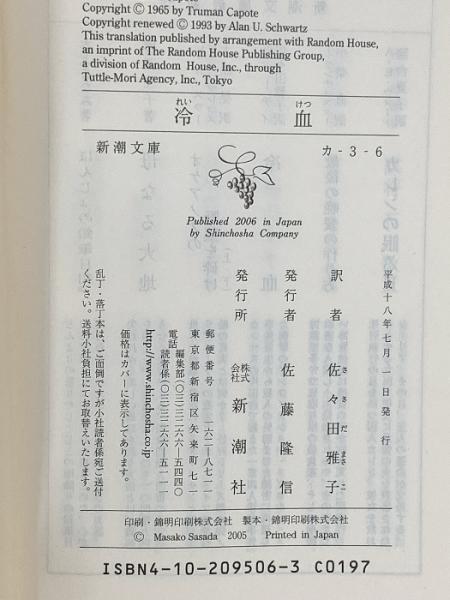 Copyright © 1965 by Truman Capote
Copyright renewed © 1993 by Alan U. Schwartz
This translation published by arrangement with Random House,
an imprint of The Random House Publishing Group,
a division of Random House, Inc., through
Tuttle-Mori Agency, Inc., Tokyo
れい けつ
冷 血
新潮文庫
カ-3-6
Published 2006 in Japan
by Shinchosha Company
平成十八年七月一日発行
訳者 佐々田雅子
さ さ だ まさ こ
発行者 佐藤隆信
発行所 株式会社 新潮社
郵便番号 一六二-八七一一
東京都新宿区矢来町七一
電話 編集部(〇三)三二六六-五四四〇
読者係(〇三)三二六六-五一一一
http://www.shinchosha.co.jp
価格はカバーに表示してあります。
乱丁・落丁本は、ご面倒ですが小社読者係宛ご送付
ください。送料小社負担にてお取替えいたします。
印刷・錦明印刷株式会社 製本・錦明印刷株式会社
© Masako Sasada 2005 Printed in Japan
ISBN4-10-209506-3 C0197